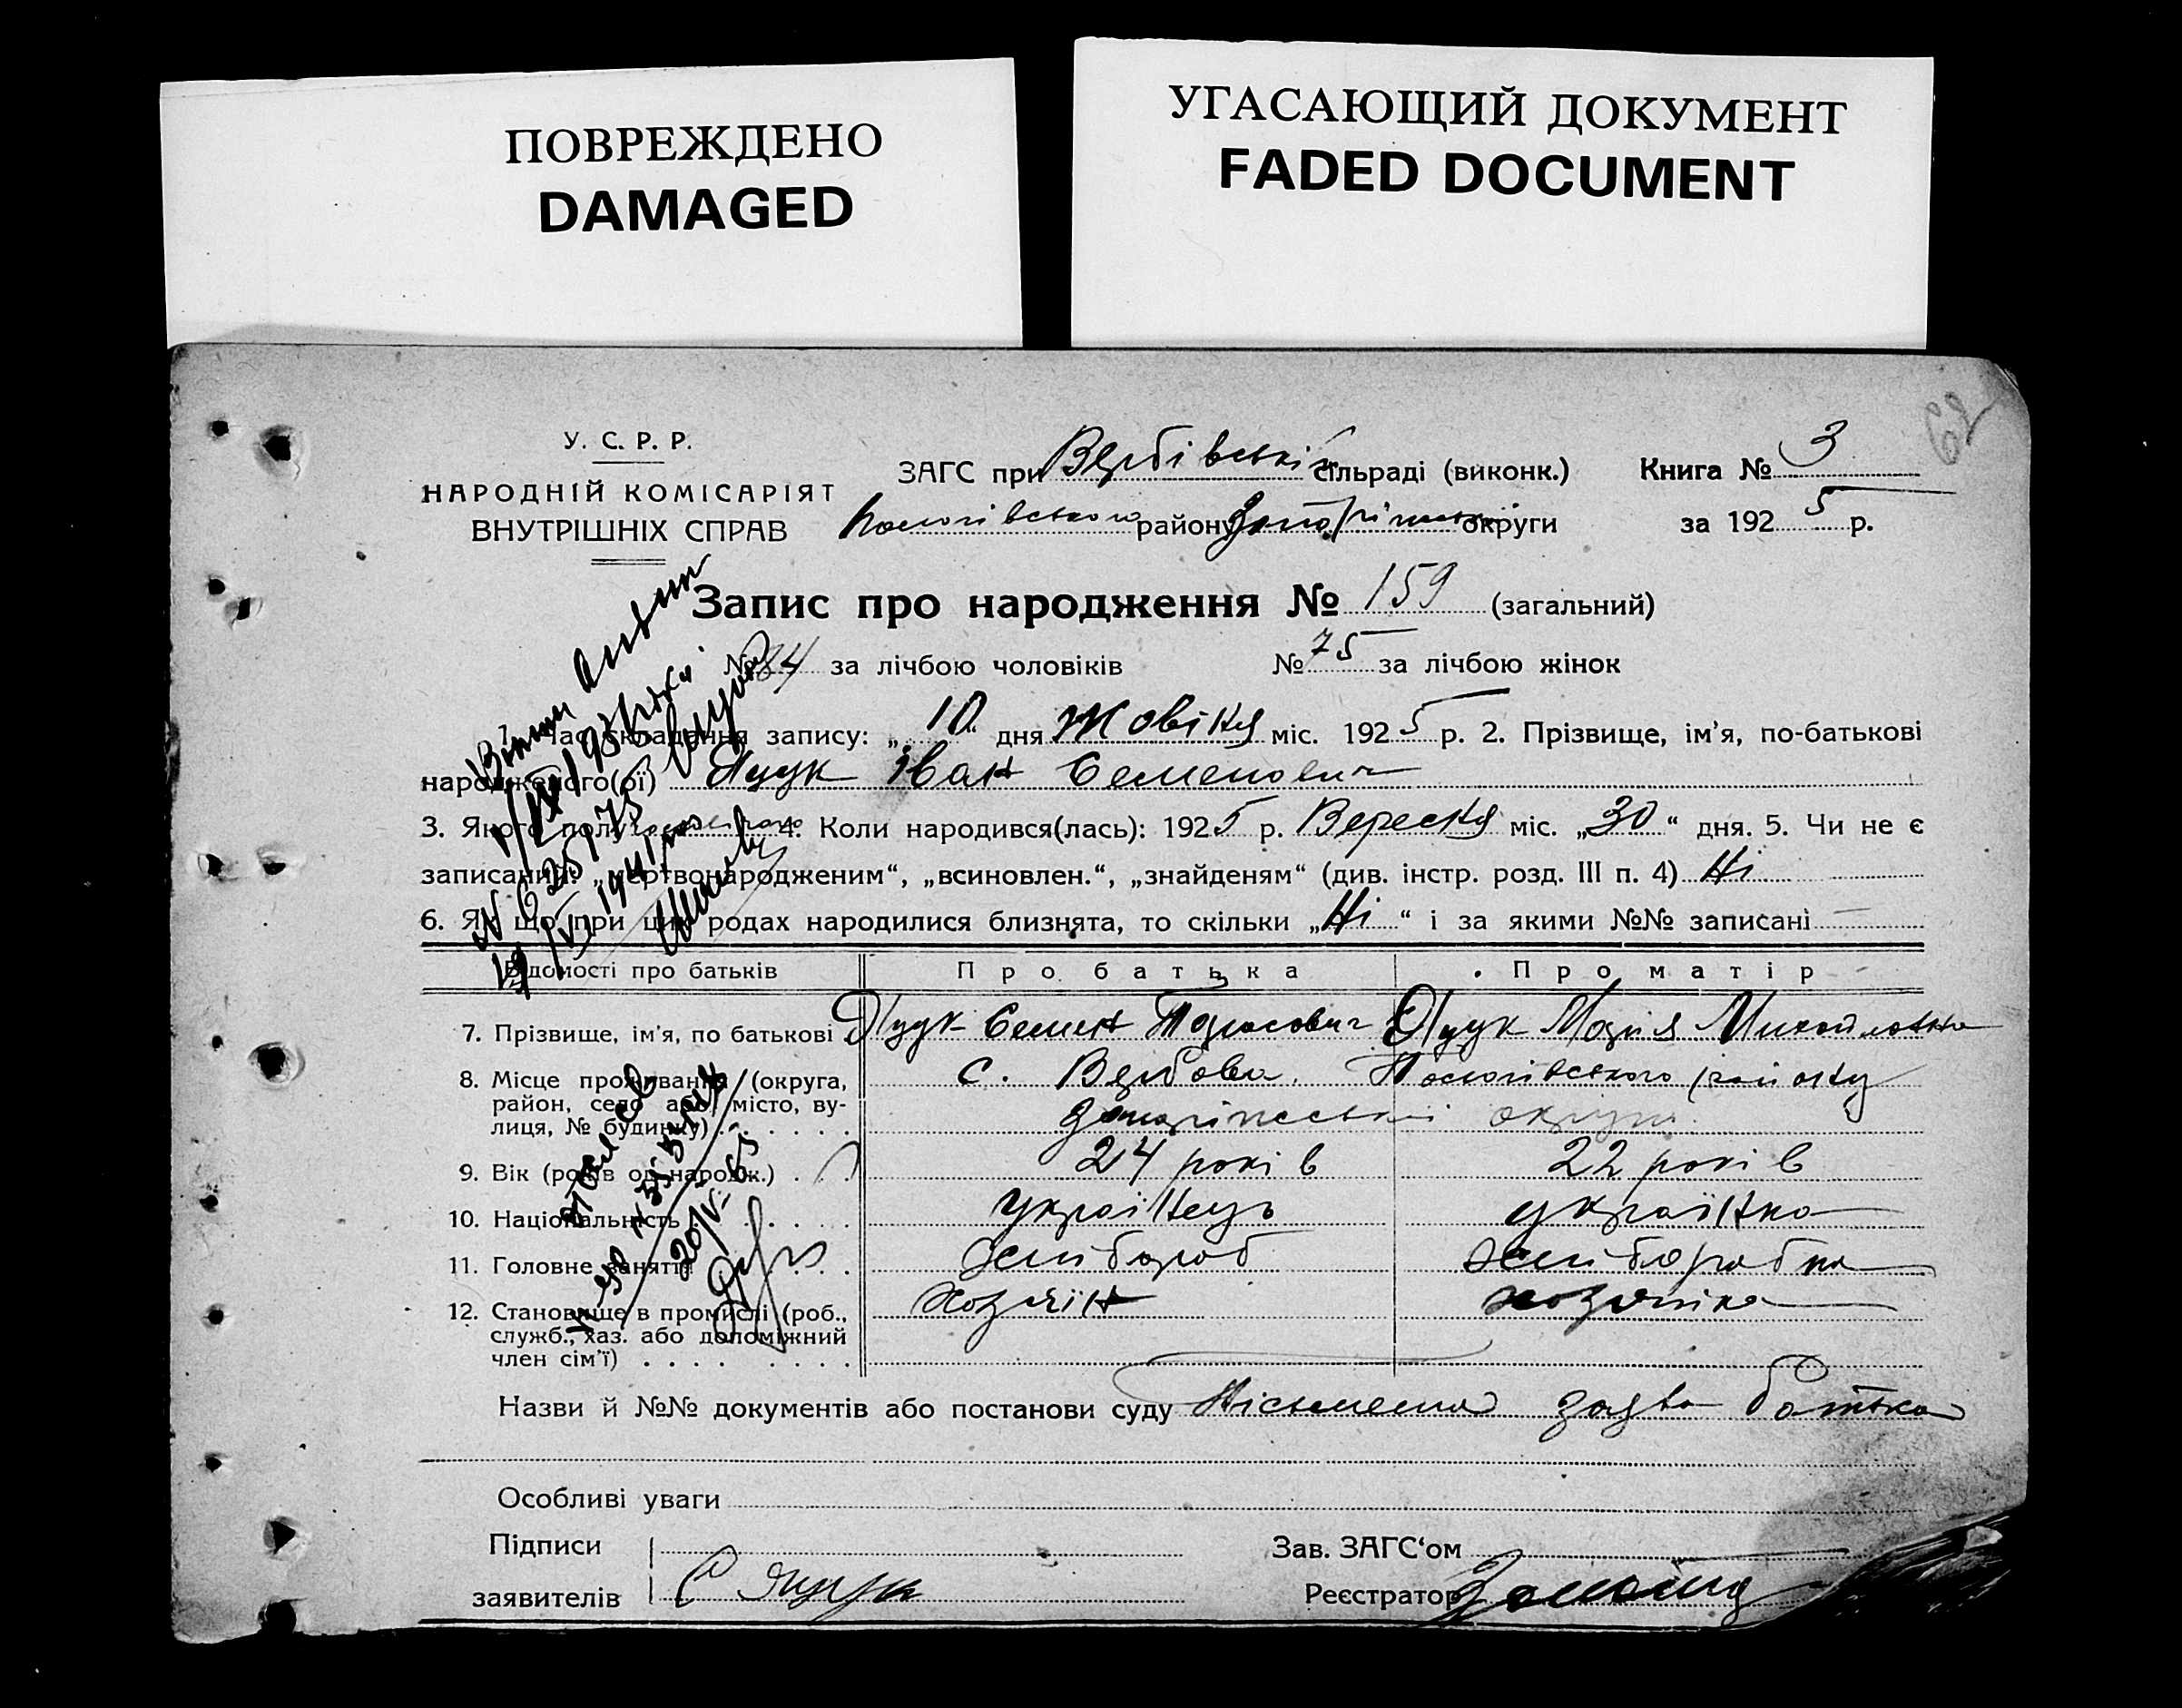 ПОВРЕЖДЕНО
DAMAGED
УГАСАЮЩИЙ ДОКУМЕНТ
FADED DOCUMENT
У. С. Р. Р.
НАРОДНІЙ КОМІСАРІЯТ
ВНУТРІШНІХ СПРАВ
ЗАГС при Вербівській сільраді (виконк.) Книга № 3
Пологівського району Запоріжської округи за 1925 р.
Запис про народження № 159 (загальний)
№ 84 за лічбою чоловіків № 75 за лічбою жінок
1. Час складання запису: „10“ дня Жовтня міс. 1925 р. 2. Прізвище, ім'я, по-батькові
народженого(ої) Яцук Іван Семенович
3. Якого полу 4. Коли народився(лась): 1925 р. Вересня міс. „30“ дня. 5. Чи не є
записаний: „мертвонародженим“, „всиновлен.“, „знайденям“ (див. інстр. розд. III п. 4) Ні
6. Як що при цих родах народилися близнята, то скільки „Ні“ і за якими №№ записані
Відомості про батьків Про батька Про матір
7. Прізвище, ім'я, по батькові Яцук Семен Тарасович Яцук Марія Михайловна
8. Місце проживання (округа, район, село або місто, вулиця, № будинку) с. Вербова Пологівського району
округи
9. Вік (років од народж.) 24 років 22 років
10. Національність Українець Українка
11. Головне заняття Хлібороб Хліборобка
12. Становище в промислі (роб., служб., хаз. або допоміжний член сім'ї) Хозяїн хозяйка
Назви й №№ документів або постанови суду Пісьмена заява батька
Особливі уваги
Підписи
заявителів С Яцук
Зав. ЗАГС'ом
Реєстратор